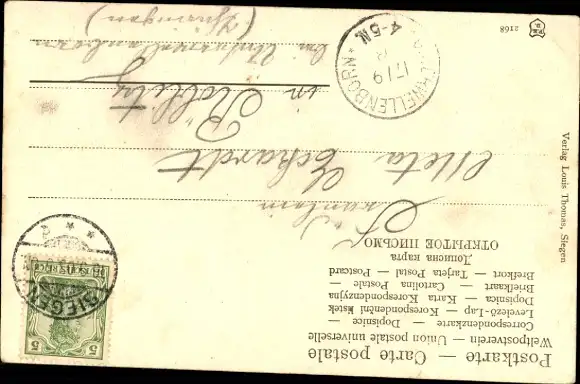 Postkarte — Carte postale
Weltpostverein — Union postale universelle
Correspondenzkarte — Dopisnice —
Levelező-Lap — Korespondenční lístek
Dopisnica — Karta Korespondencyjna
Briefkaart — Cartolina Postale —
Brefkort — Tarjeta Postal — Postcard
Дописна карта
ОТКРЫТОЕ ПИСЬМО
Fräulein
Meta Eckardt
in Röblitz
bei Unterwellenborn
(Thüringen)
Verlag Louis Thomas, Siegen
2168
SIEGEN
5 5
UNTERWELLENBORN
17/9
4-5N.